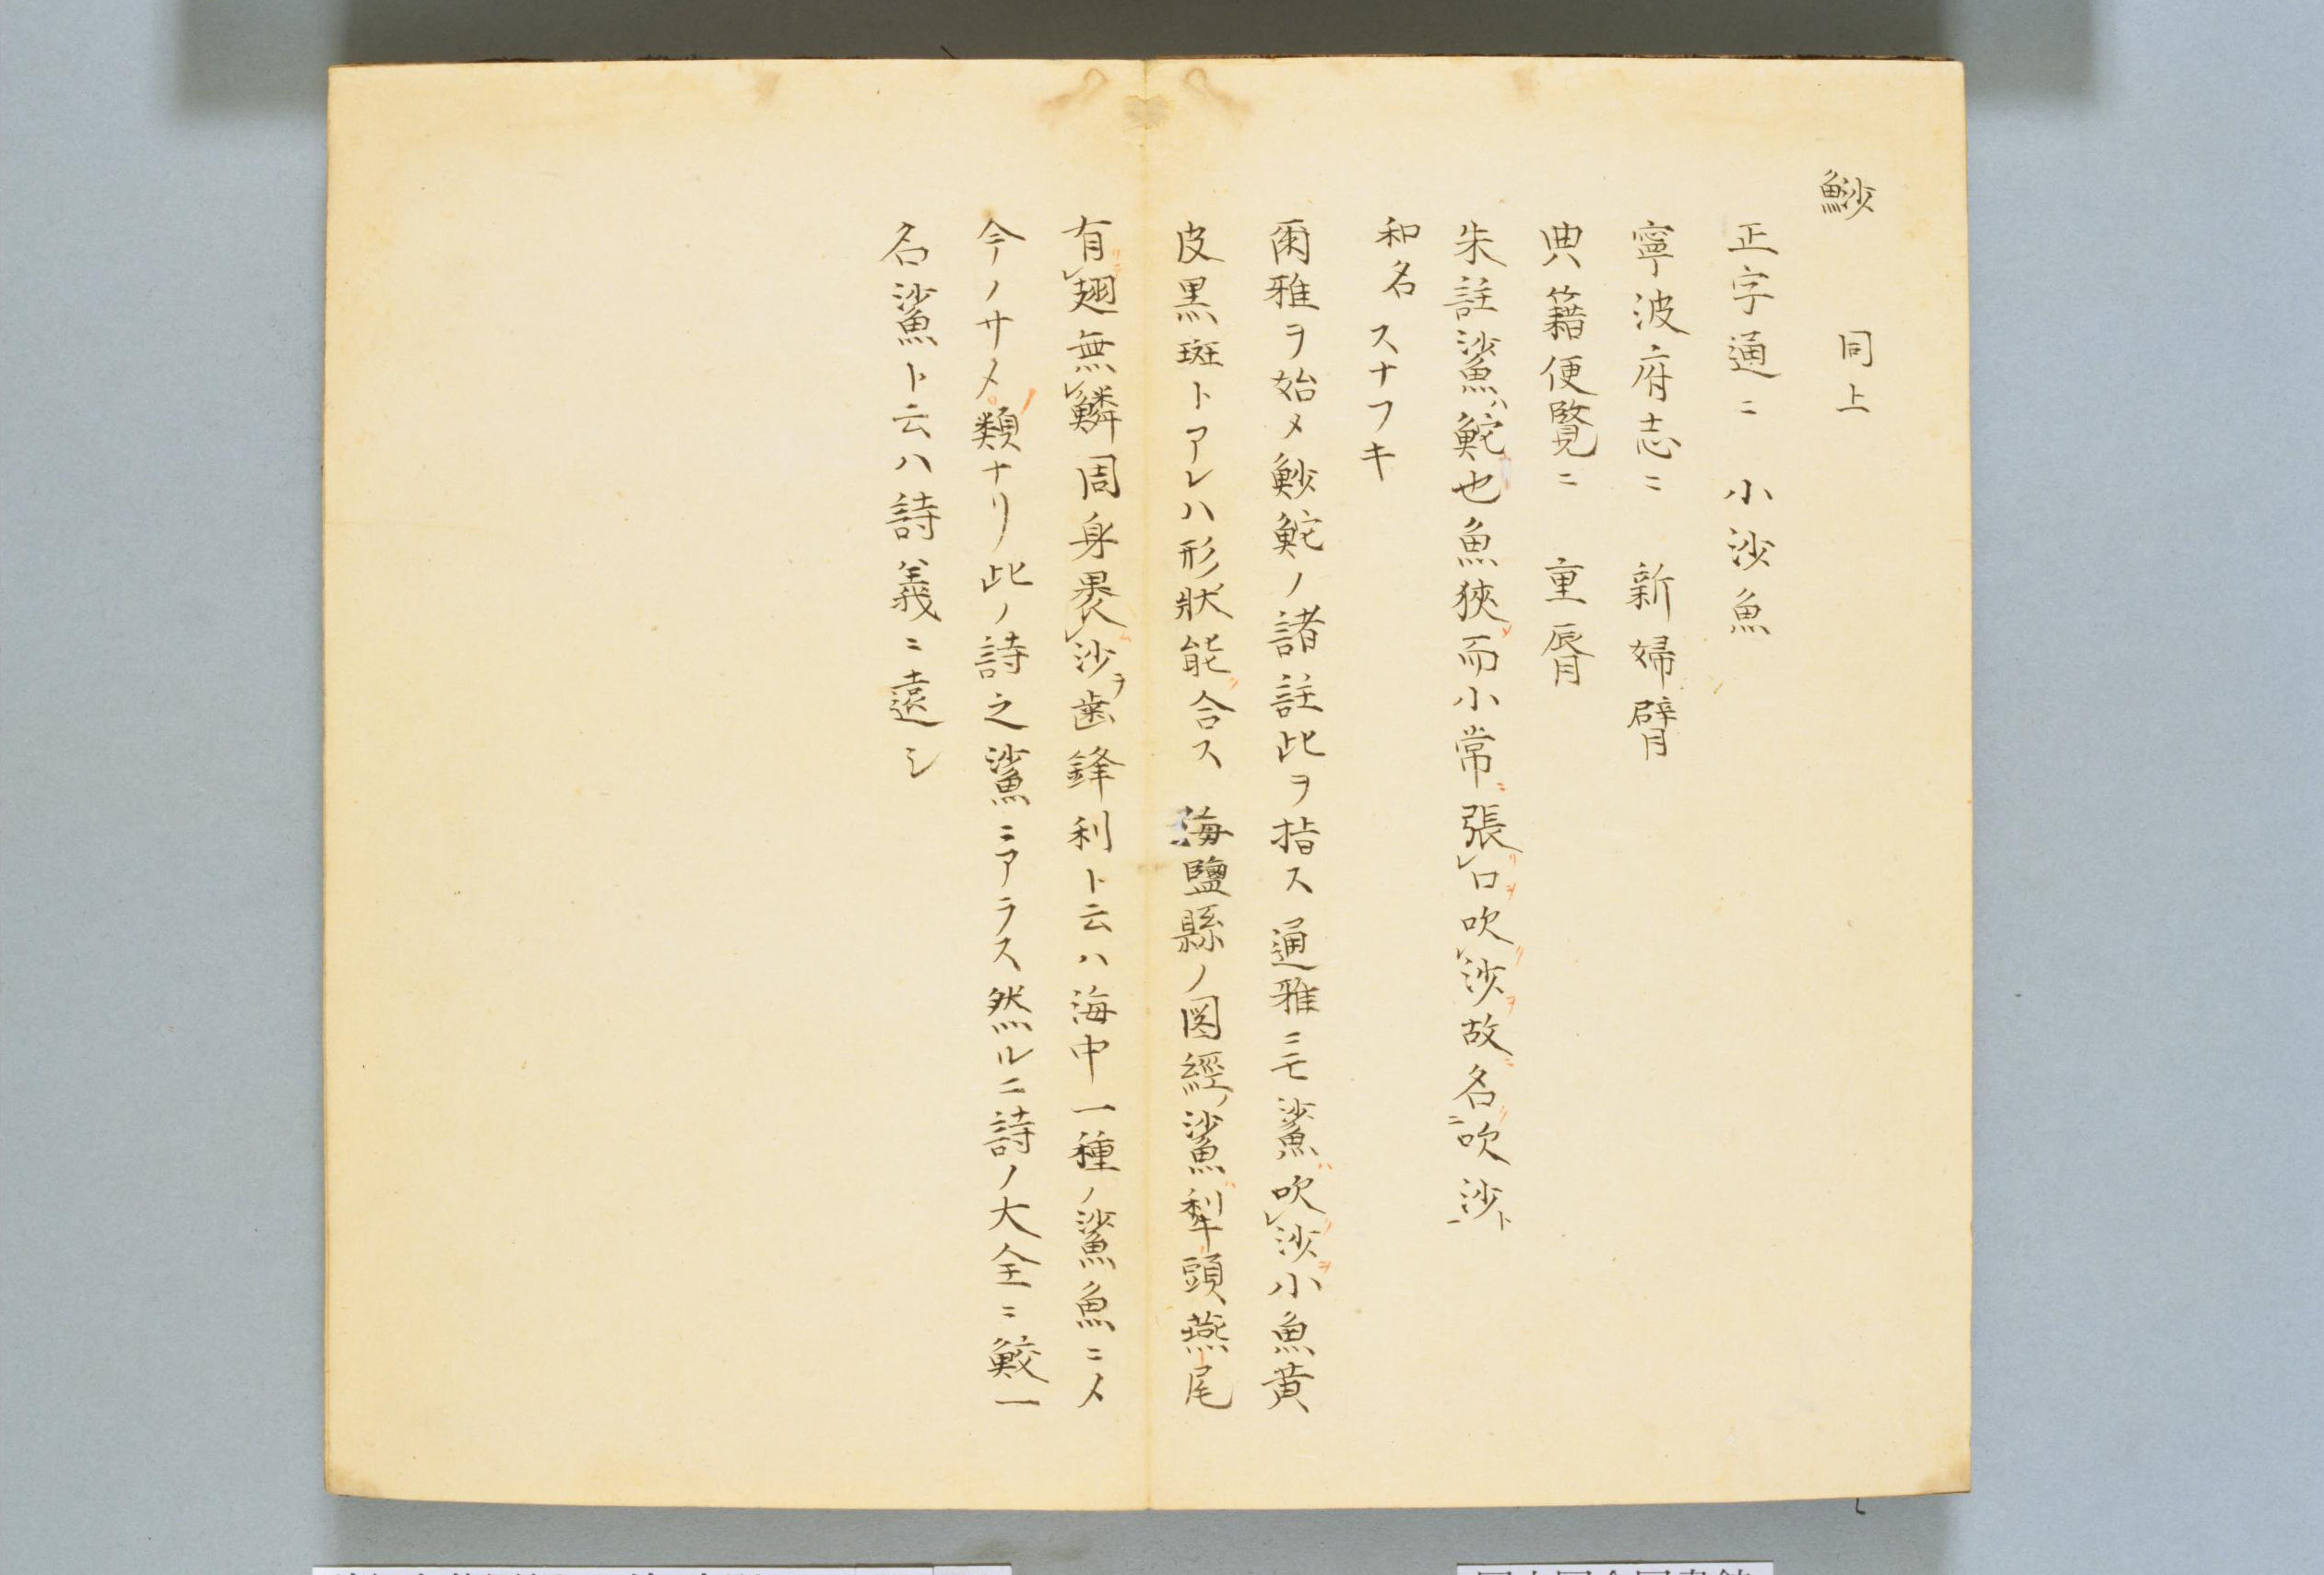 魦　同上
正字通ニ　小沙魚
寧波府志ニ　新婦臂
典籍便覧ニ　重脣
朱註鯊ハ鮀也魚狹而小常ニ張レ口吹レ沙故名ニ吹沙ト一
和名 スナフキ
爾雅ヲ始メ魦鮀ノ諸註比ヲ指ス通雅ニモ鯊ハ吹レ沙小魚黄
皮黒斑トアレハ形狀能合ス 海鹽縣ノ図經ノ鯊ハ犁頭燕尾
有レ翅無レ鱗周身褁レ沙ヲ歯鋒利ト云ハ海中一種ノ鯊魚ニメ
今ノサメノ類ナリ此ノ詩之鯊ニアラス然ルニ詩ノ大全ニ鮫一
名鯊ト云ハ詩義ニ遠シ